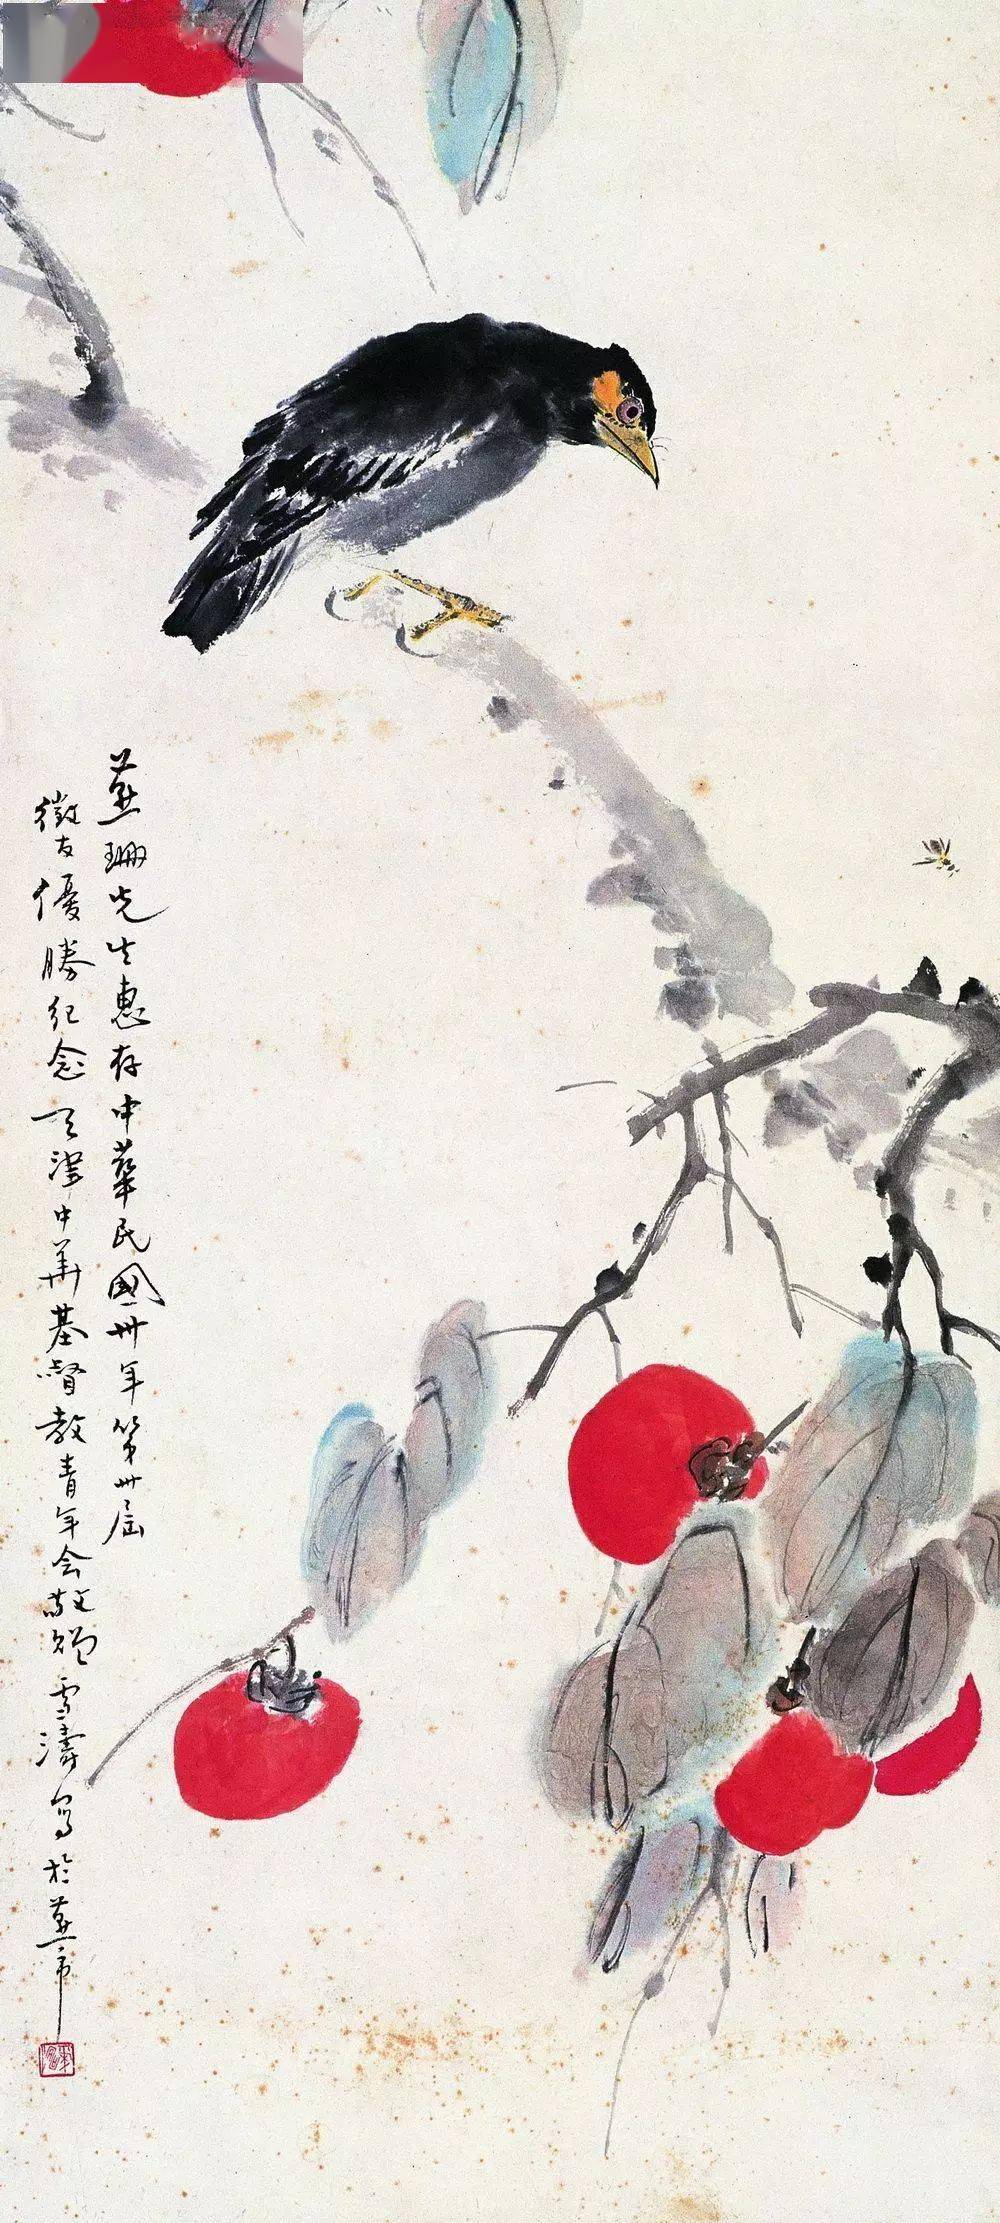 燕珊先生惠存中華民國卅年第卅屆
徵友優勝纪念天津中華基督教青年会敬贈雪濤寫於燕市